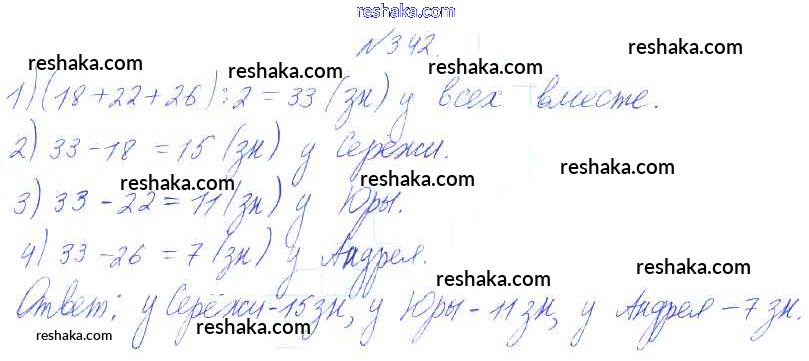 reshaka.com
№342.
reshaka.com reshaka.com reshaka.com
1) (18+22+26):2=33 (зн) у всех вместе.
reshaka.com reshaka.com
2) 33-18=15 (зн) у Серёжи.
reshaka.com reshaka.com
3) 33-22=11 (зн) у Юры.
4) 33-26=7 (зн) у Андрея.
reshaka.com reshaka.com
Ответ: у Серёжи-15зн, у Юры-11зн, у Андрея-7зн.
reshaka.com reshaka.com reshaka.com